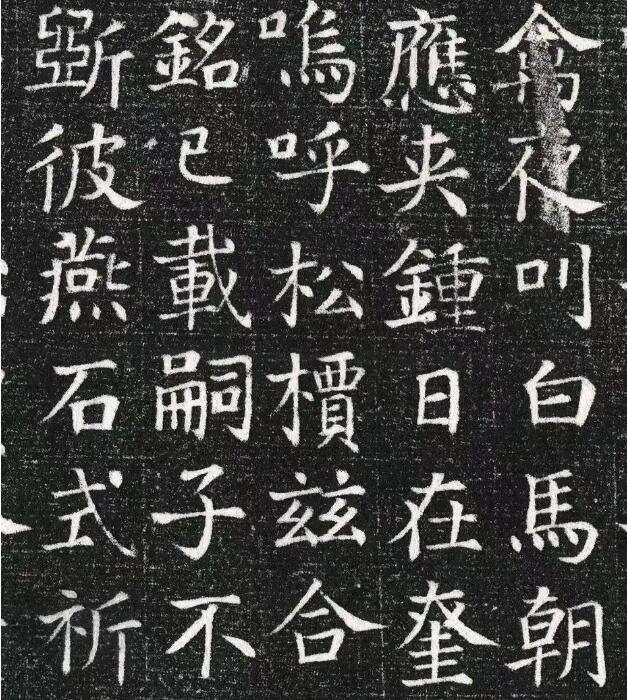 禽夜叫白馬朝
應夹鍾日在奎
嗚呼松檟兹合
銘已載嗣子不
斵彼燕石式祈